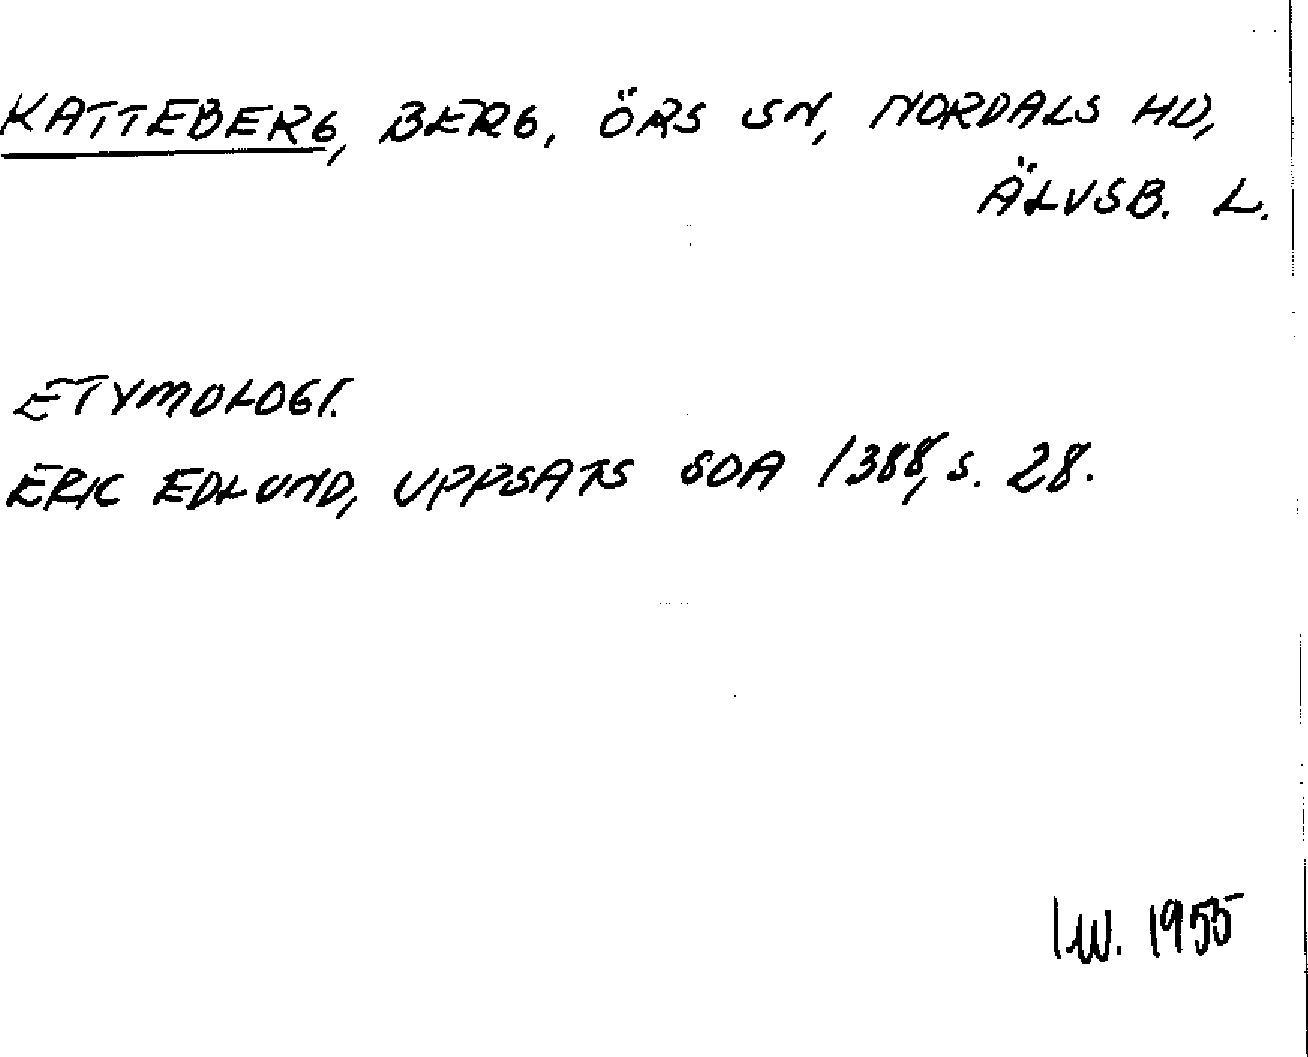 KATTEBERG, BERG, ÖRS SN, NORDALS HD,
ÄLVSB. L.
ETYMOLOGI.
ERIC EDLUND, UPPSATS SOA 1388, s. 28.
I.W. 1955